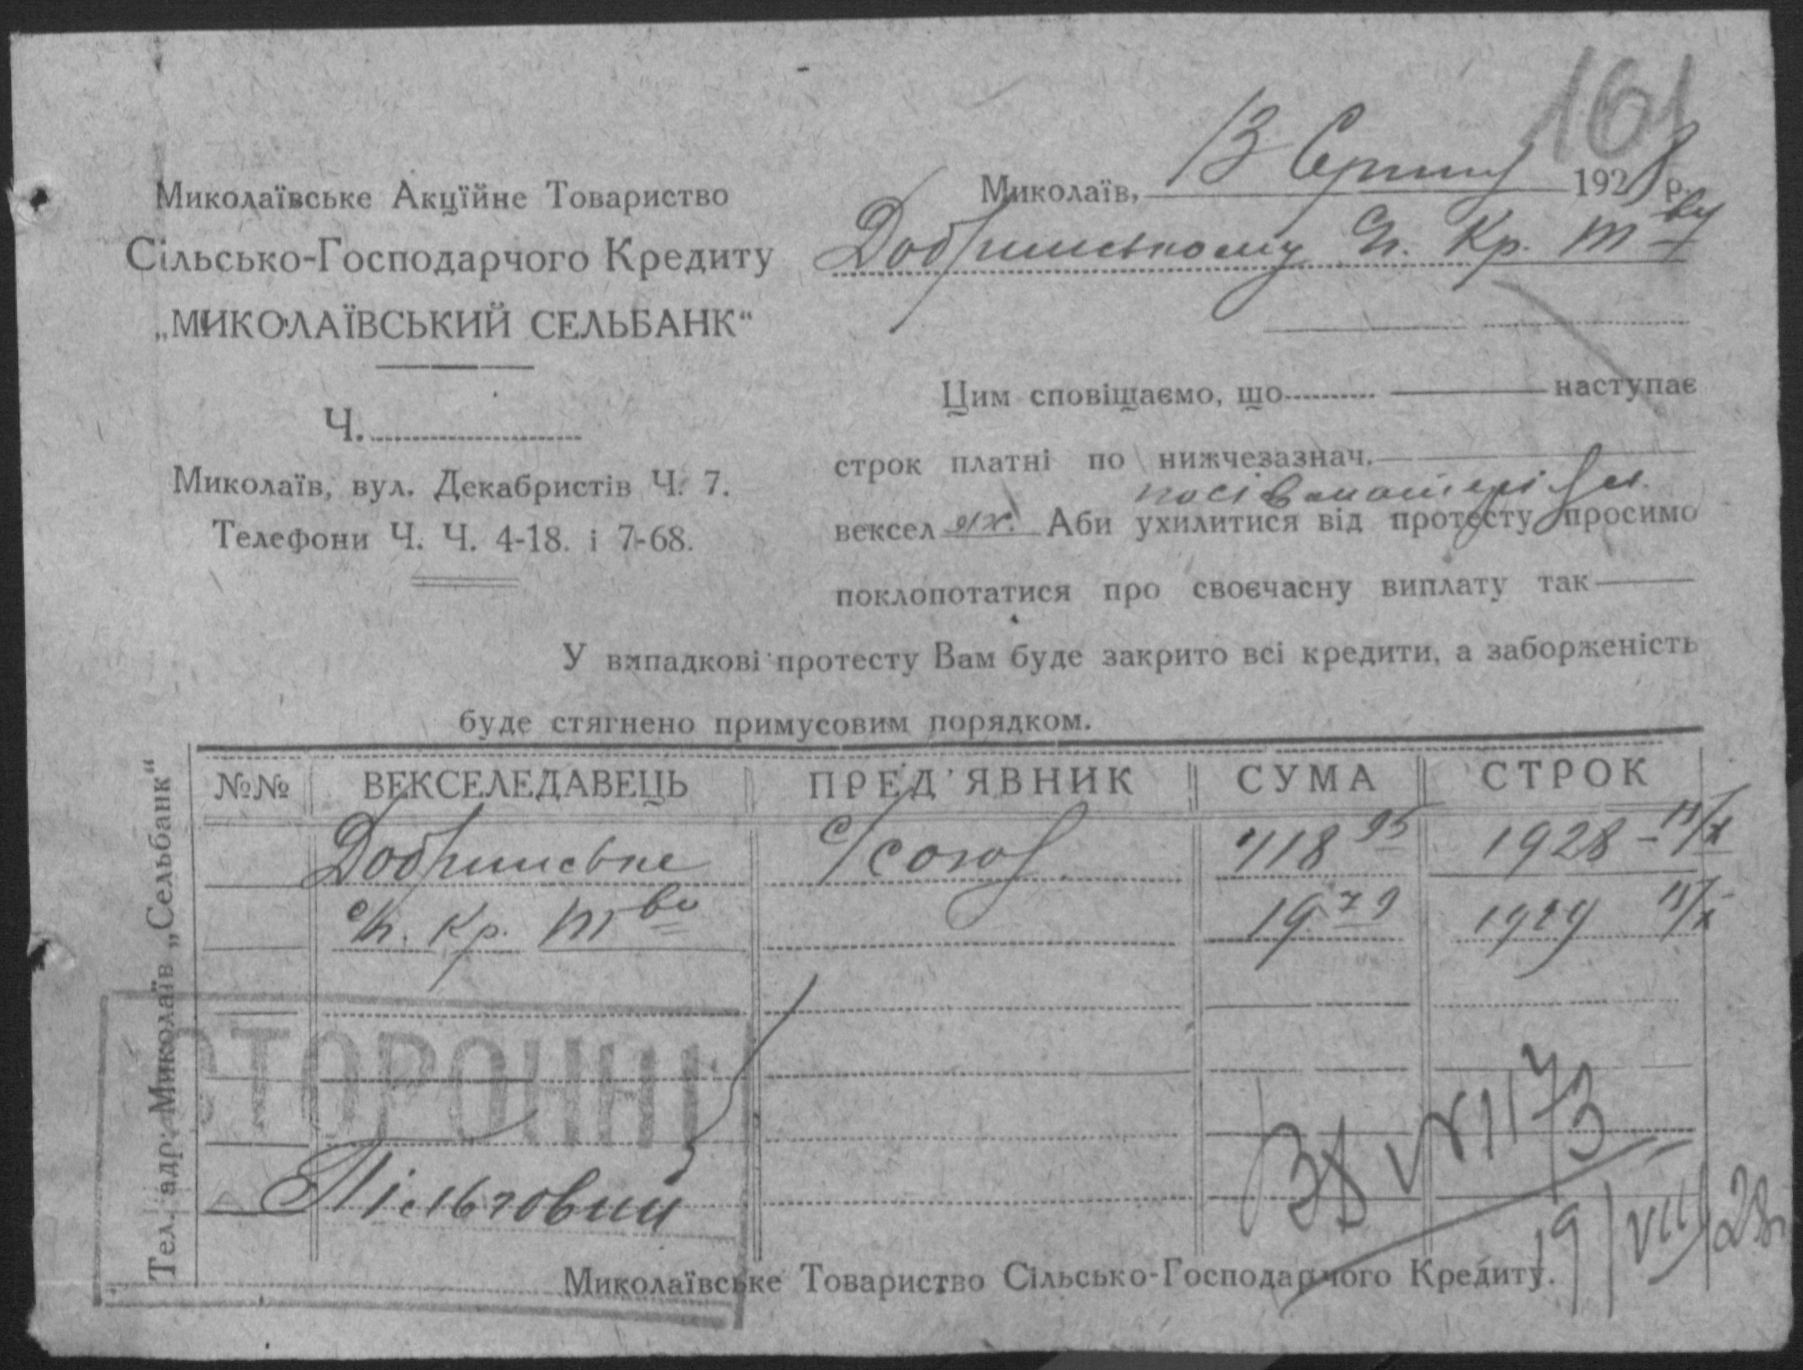 161
Миколаївське Акційне Товариство
Сільсько-Господарчого Кредиту
„МИКОЛАЇВСЬКИЙ СЕЛЬБАНК“
Ч.
Миколаїв, вул. Декабристів Ч. 7.
Телефони Ч. Ч. 4-18. і 7-68.
Миколаїв, 13 Серпня 1928 р.
Добринському Кр. Т-ву
Цим сповіщаємо, що наступає
строк платні по нижчезазнач.
посівматеріял
вексел ях. Аби ухилитися від протесту просимо
поклопотатися про своєчасну виплату так
У випадкові протесту Вам буде закрито всі кредити, а заборженість
буде стягнено примусовим порядком.
Тел. адр. Миколаїв „Сельбанк“
№№ ВЕКСЕЛЕДАВЕЦЬ ПРЕД'ЯВНИК СУМА СТРОК
Добринське с/союз 418 95 1928
Кр. Т-во 19 79 1929
СТОРОННІ
Пільговий
№1173
19/VIII/28
Миколаївське Товариство Сільсько-Господарчого Кредиту.